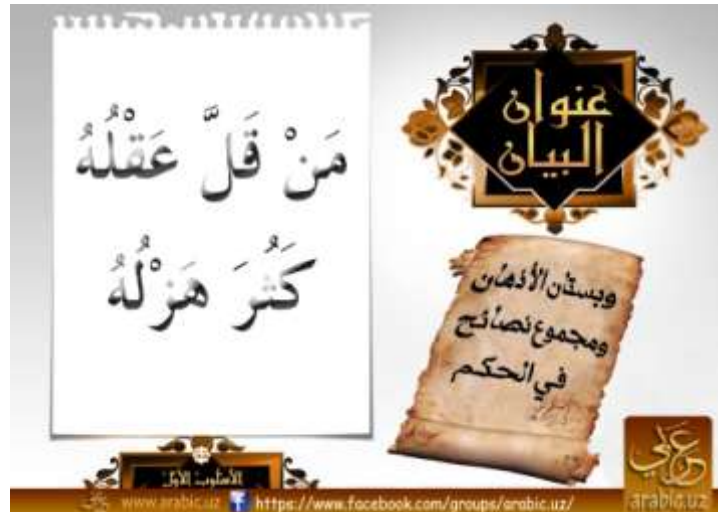 مَنْ قَلَّ عَقْلُهُ
كَثُرَ هَزْلُهُ
عنوان
البيان
وبستان الأذهان
ومجموع نصائح
في الحكم
الأسلوب الأول
www.arabic.uz https://www.facebook.com/groups/arabic.uz/
عربي
arabic.uz